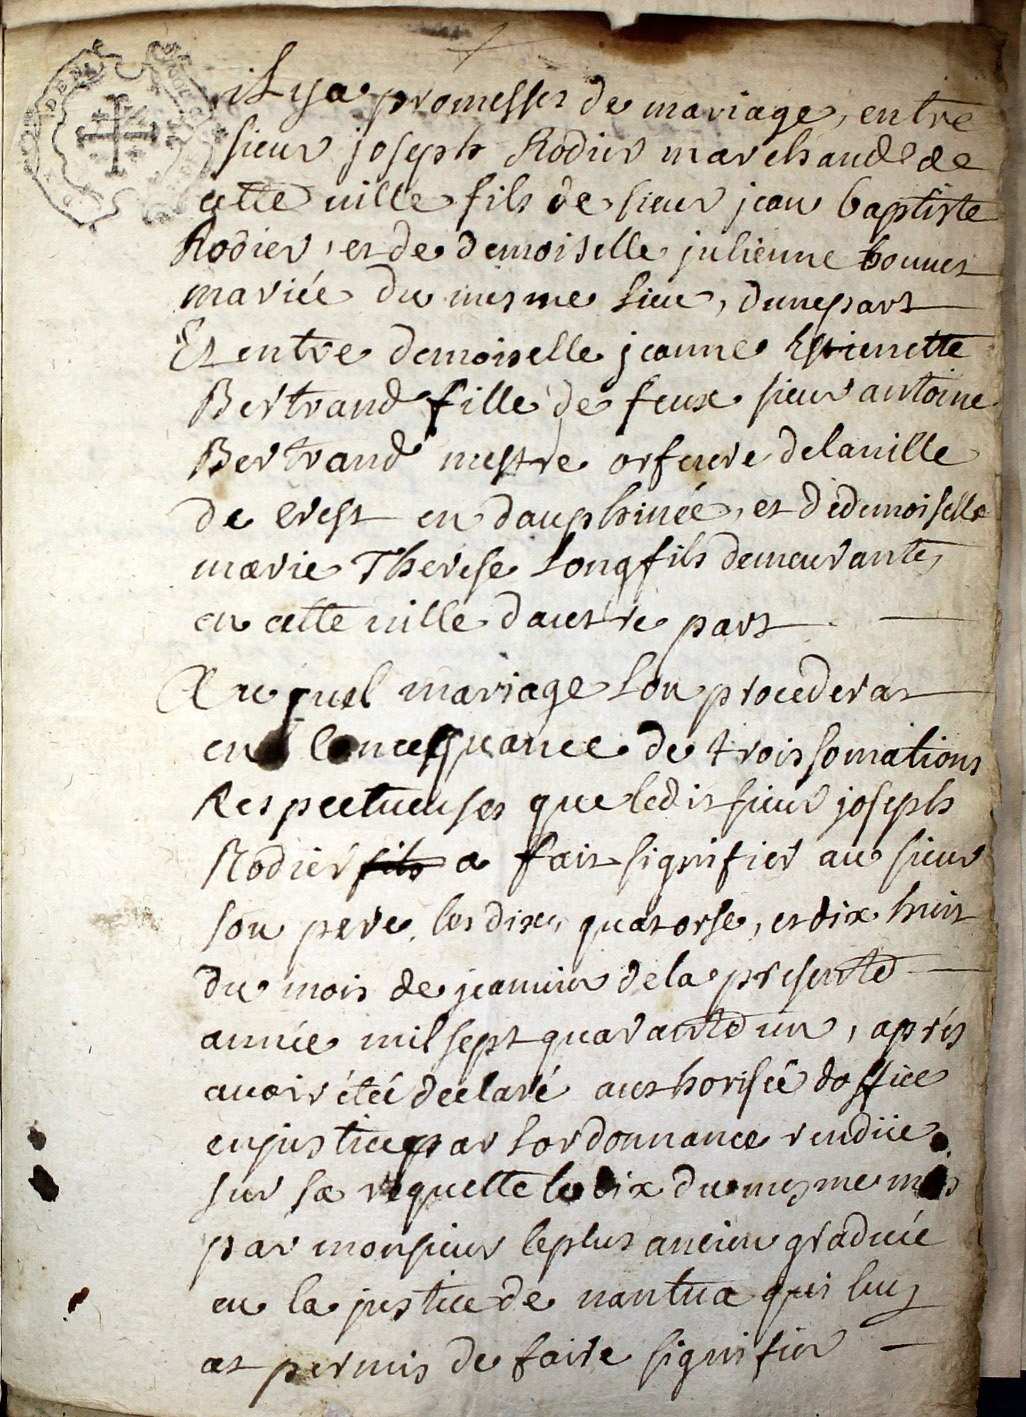 il y a promesses de mariage, entre
sieur joseph Rodier marchand de
cette ville fils de sieur jean baptiste
Rodier, et de demoiselle julienne bonnet
mariée du mesme lieu, dunepart
Et entre demoiselle jeanne Estienette
Bertrand fille de feux sieur antoine
Bertrand mestre orfeuvre delaville
de Crest en dauphinée, et dedemoiselle
marie Therese Longfils demeurante,
en cette ville dautre part
Auquel mariage lon procederat
en concequance de trois somations
Respectueuses que ledit sieur joseph
Rodier fils a fait signifier au sieur
son pere, les dix, quatorse, et dix huit
du mois de jeanvier dela presente
année mil sept quarante un, aprés
avoir étéé declaré authorisée doffice
enjustice par lordonnance rendüe
sur sa requette le dix du mesme mois
par monsieur leplus ancien graduée
en la justice de nantua qui luy
at permis de faire signifier